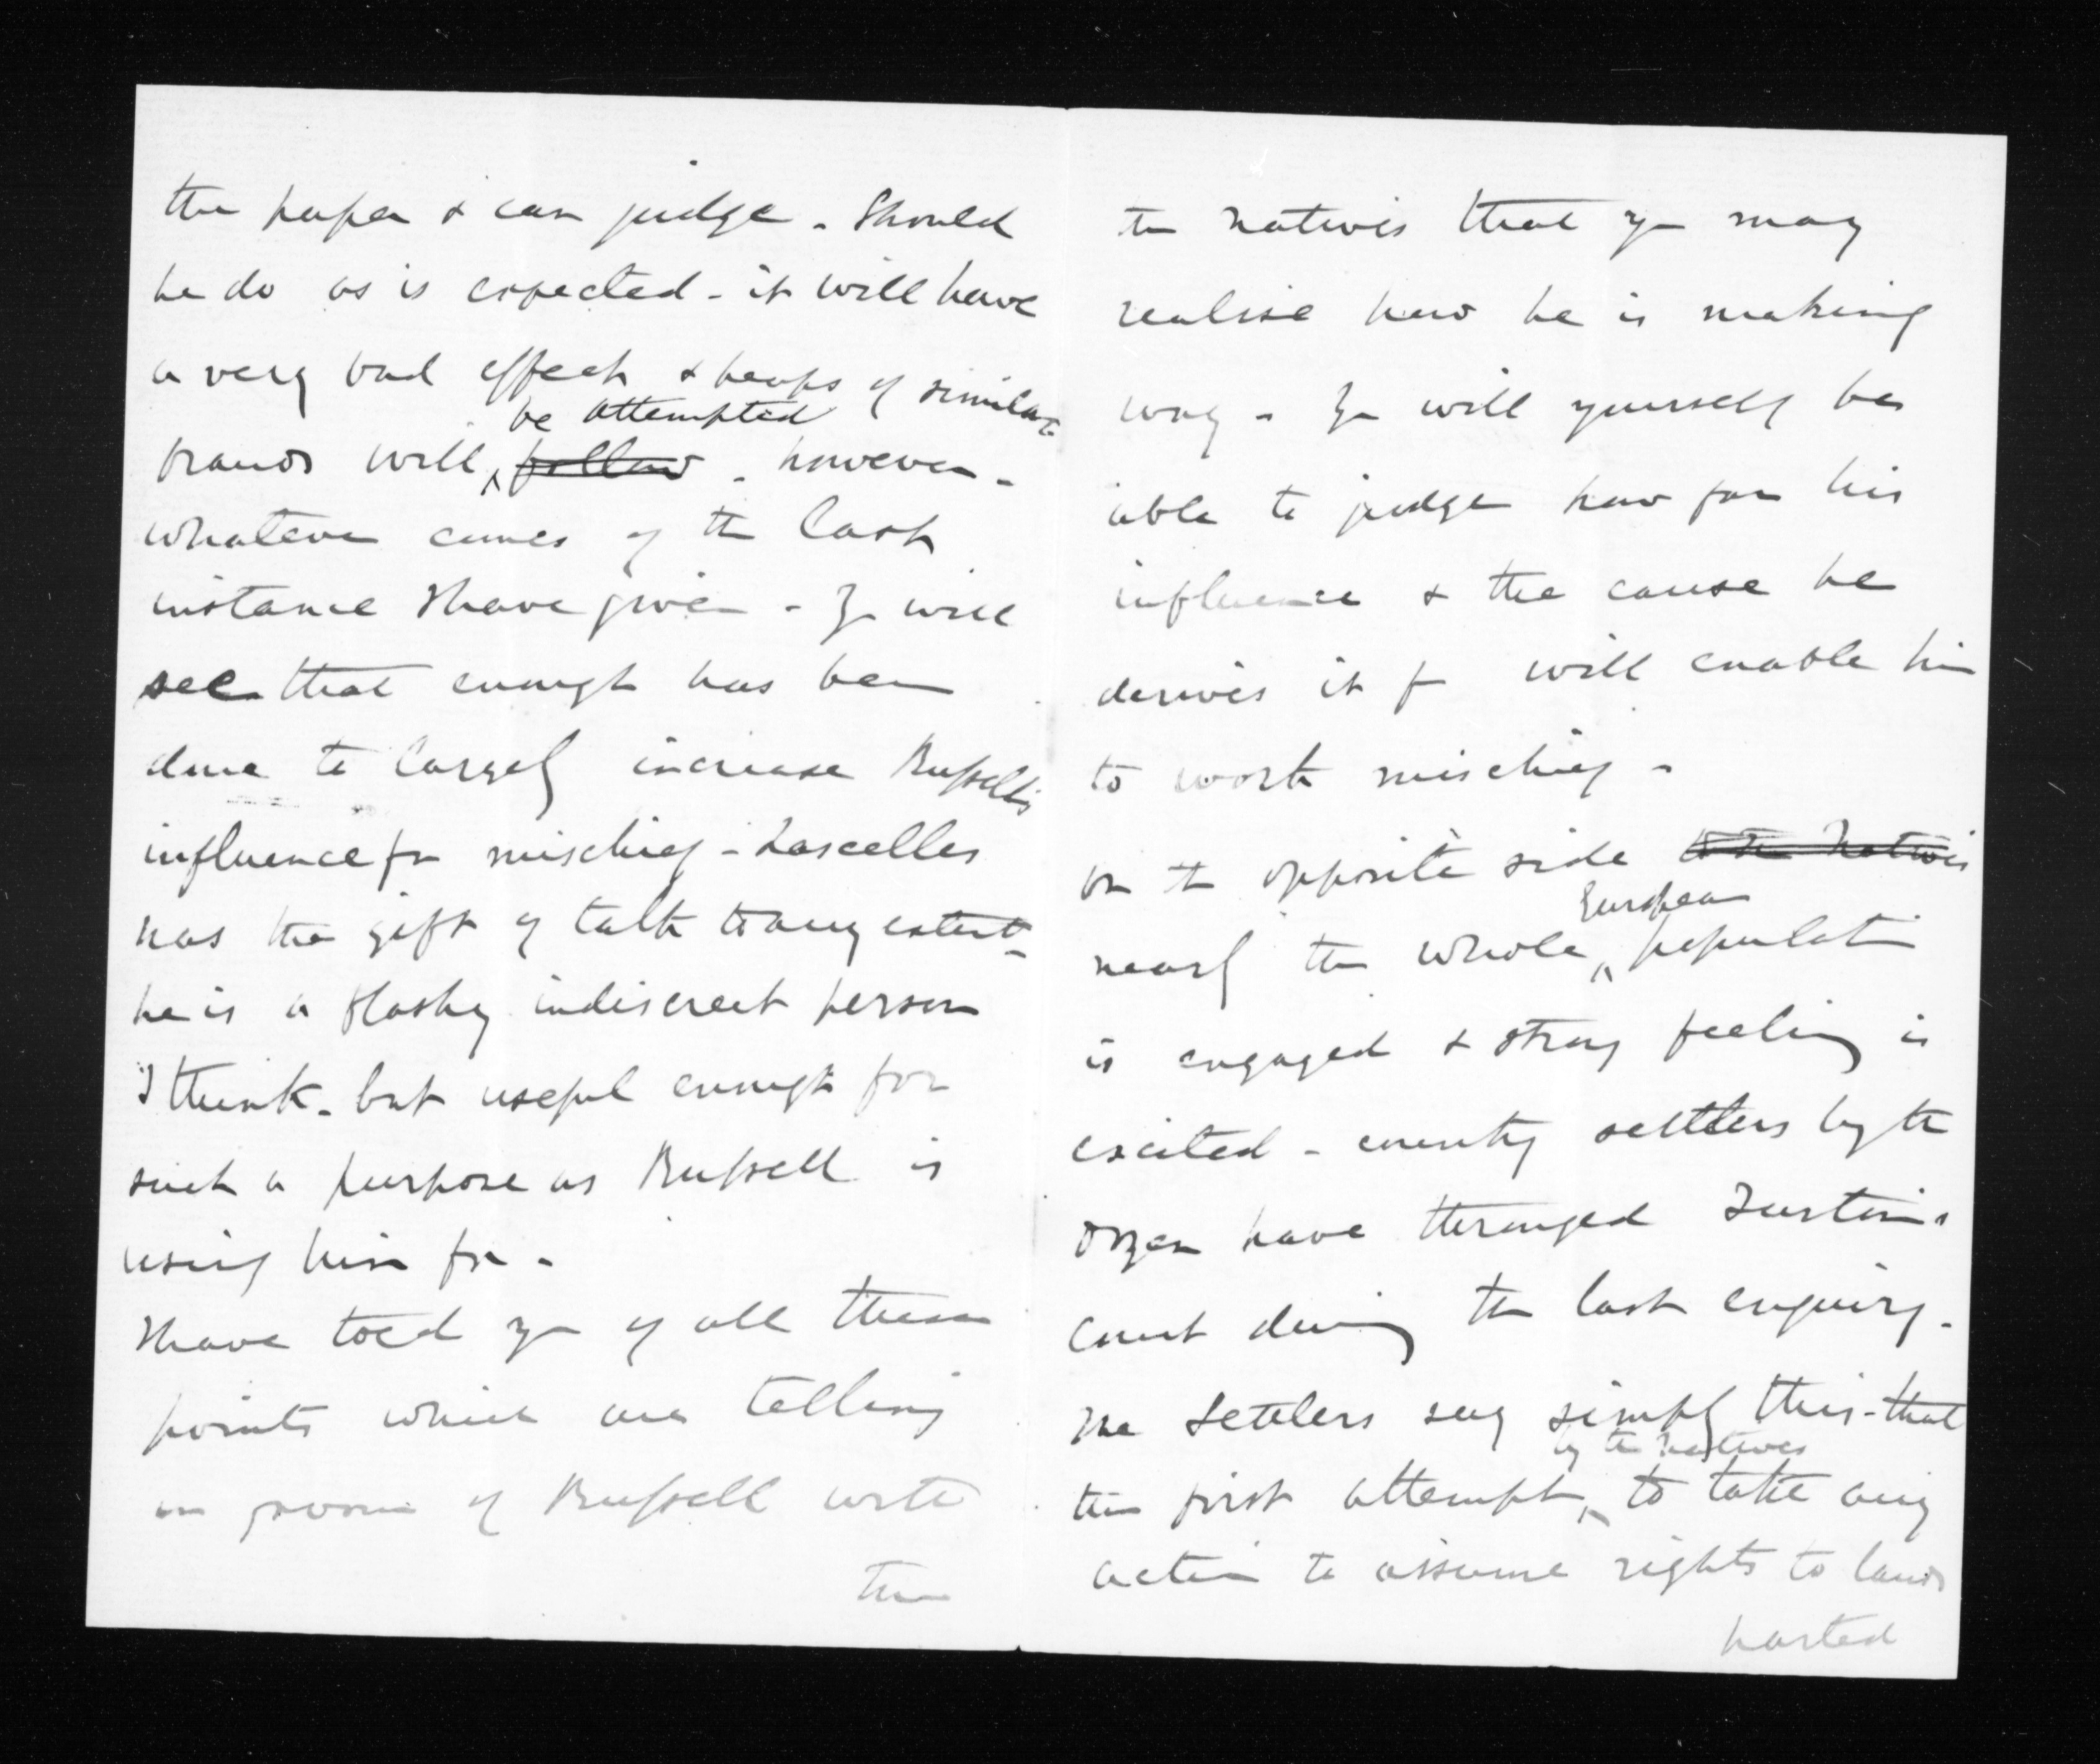 the paper & can judge - Should
he do as is expected - it will have
a very bad effect & heaps of similar
be attempted
frauds will follow - however -
whatever comes of the last
instance I have given - Yr will
see that enough has been
done to largely increase Russell's
influence for mischief - Lascelles
has the gift of talk to any extent -
he is a flashy indiscreet person
I think - but useful enough for
such a purpose as Russell is
using him for -
I have told yr of all these
points which are telling
in favour of Russell with
the
the natives that yr may
realise how he is making
way - Yr will yourself be
able to judge how far his
influence & the cause he
derives it fr will enable him
to work mischief -
On the opposite side to the Natives
European
nearly the whole population
is engaged & strong feeling is
excited - country settlers by the
dozen have thronged Turton's
Court during the last enquiry -
The Settlers say simply this - that
by the natives
the first attempt to take any
action to assume rights to lands
parted